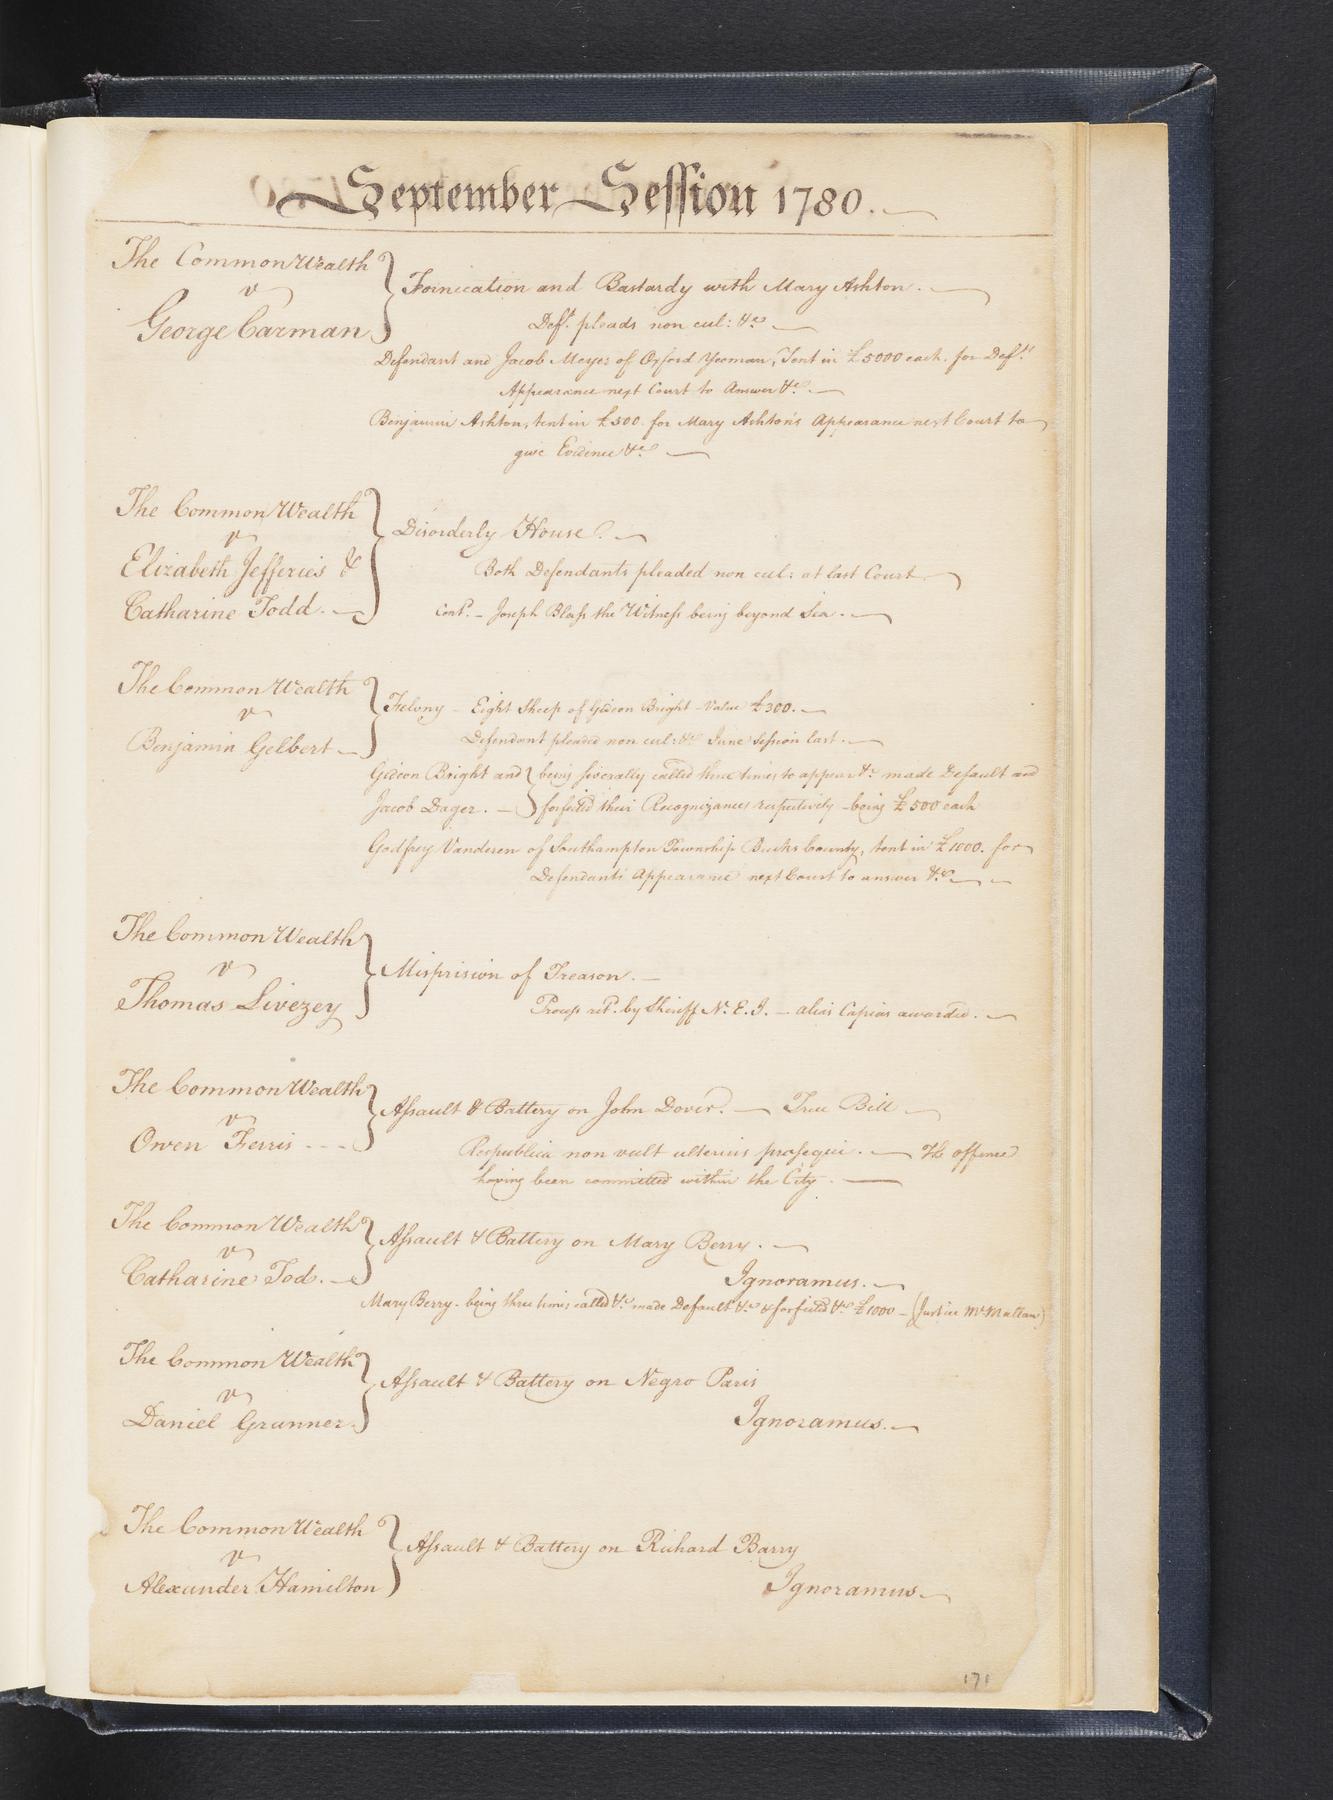 September Session 1780.
The CommonWealth
v
George Carman
Fornication and Bastardy with Mary Ashton.
Deft. pleads non cul: &c
Defendant and Jacob Meyer of Oxford Yeoman, Tent in £5000 each. for Defts
Appearance next Court to Answer &c.
Benjamin Ashton, tent in £500. for Mary Ashton's Appearance next Court to
give Evidence &c
The CommonWealth
v
Elizabeth Jefferies &
Catharine Todd.
Disorderly House.
Both Defendants pleaded non cul: at last Court
Cont. - Joseph Blass the Witness being beyond Sea.
The CommonWealth
v
Benjamin Gelbert
Felony - Eight Sheep of Gideon Bright - Value £300.
Defendant pleaded non cul: &c June Session last.
Gideon Bright and
Jacob Dager.
being severally called three times to appear &c made Default and
forfeited their Recognizances respectively - being £500 each
Godfrey Vanderen of Southampton Township Bucks County, tent in £1000. for
Defendants Appearance next Court to answer &c
The CommonWealth
v
Thomas Livezey
Misprision of Treason.
Process ret. by Sheriff N. E. I. - alias Capias awarded.
The CommonWealth
v
Owen Ferris
Assault & Battery on John Dover. True Bill
Respublica non vult ulterius prosequi. The offence
having been committed within the City.
The CommonWealth
v
Catharine Tod.
Assault & Battery on Mary Berry.
Ignoramus.
Mary Berry - being three times called &c made Default &c & forfeited &c £1000 - (Justice McMullan)
The CommonWealth
v
Daniel Grunner
Assault & Battery on Negro Paris
Ignoramus.
The CommonWealth
v
Alexander Hamilton
Assault & Battery on Richard Barry
Ignoramus
171